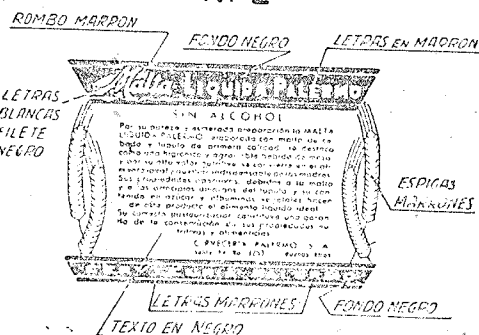 ROMBO MARRON
FONDO NEGRO
LETRAS EN MARRON
Malta LIQUIDA PALERMO
LETRAS
BLANCAS
FILETE
NEGRO
SIN ALCOHOL
Por su pureza y esmerada preparación la MALTA
LIQUIDA PALERMO, elaborada con malta de ce-
bada y lúpulo de primera calidad, se destaca
como una higiénica y agradable bebida de mesa
y por su alto valor nutritivo se convierte en el ali-
mento
indispensable de las madres
Sus propiedades
debidas a su malta
y a los principios
del lúpulo y su con-
tenido en azúcar y albúminas
hacen
de este producto el alimento líquido ideal
Su correcta pasteurización constituye una garan-
tía de la conservación de sus propiedades nu-
tritivas y alimenticias
CERVECERIA PALERMO S A
Santa Fe
Buenos Aires
ESPIGAS
MARRONES
LETRAS MARRONES
FONDO NEGRO
TEXTO EN NEGRO